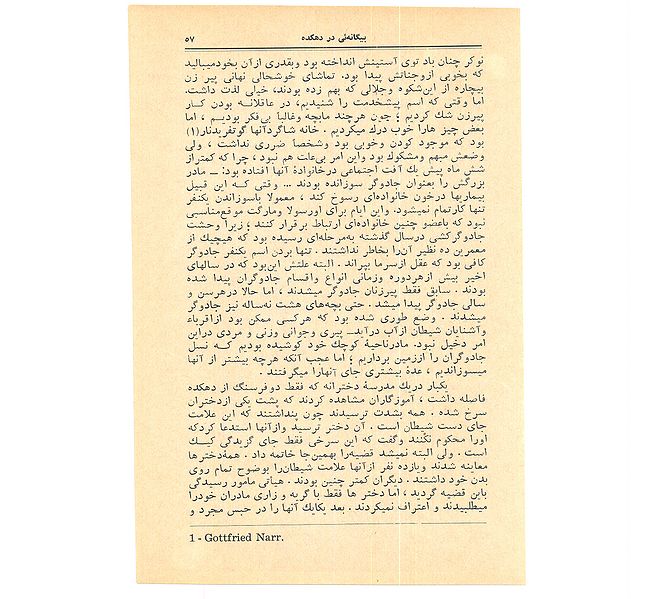 بیگانه‌ئی در دهکده
۵۷
نوکر چنان باد توی آستینش انداخته بود وبقدری ازآن بخودمیبالید
که بخوبی ازوجناتش پیدا بود. تماشای خوشحالی نهانی پیر زن
بیچاره از این‌شکوه وجلالی که بهم زده بودند، خیلی لذت داشت.
اما وقتی که اسم پیشخدمت را شنیدیم، در عاقلانه بودن کار
پیرزن شك کردیم ؛ چون هرچند مابچه وغالباً بی‌فکر بودیم ، اما
بعض چیز هارا خوب درك میکردیم . خانه شاگردآنها گوتفریدنار(۱)
بود که موجود کودن وخوبی بود وشخصاً ضرری نداشت ، ولی
وضعش مبهم ومشکوك بود واین امر بی‌علت هم نبود ، چرا که کمتراز
شش ماه پیش یك آفت اجتماعی درخانوادهٔ آنها افتاده بود: ـ مادر
بزرگش را بعنوان جادوگر سوزانده بودند ... وقتی که این قبیل
بیماریها درخون خانواده‌ای رسوخ کند ، معمولا باسوزاندن یکنفر
تنها کارتمام نمیشود. واین ایام برای اورسولا ومارگت موقع‌مناسبی
نبود که باعضو چنین خانواده‌ای ارتباط برقرار کنند ؛ زیرا وحشت
جادوگرکشی درسال گذشته به‌مرحله‌ای رسیده بود که هیچیك از
معمرین ده نظیر آن‌را بخاطر نداشتند . تنها بردن اسم یکنفر جادوگر
کافی بود که عقل ازسرما بپراند . البته علتش این‌بود که در سالهای
اخیر بیش ازهردوره وزمانی انواع واقسام جادوگران پیدا شده
بودند . سابق فقط پیرزنان جادوگر میشدند ، اما حالا درهرسن و
سالی جادوگر پیدا میشد . حتی بچه‌های هشت نه‌ساله نیز جادوگر
میشدند . وضع طوری شده بود که هرکسی ممکن بود ازاقرباء
وآشنایان شیطان ازآب درآید- پیری وجوانی وزنی و مردی دراین
امر دخیل نبود. مادرناحیهٔ کوچك خود کوشیده بودیم که نسل
جادوگران را اززمین برداریم ؛ اما عجب آنکه هرچه بیشتر از آنها
میسوزاندیم ، عدهٔ بیشتری جای آنهارا میگرفتند .
یکبار دریك مدرسهٔ دخترانه که فقط دوفرسنگ از دهکده
فاصله داشت ، آموزگاران مشاهده کردند که پشت یکی ازدختران
سرخ شده . همه بشدت ترسیدند چون پنداشتند که این علامت
جای دست شیطان است . آن دختر ترسید وازآنها استدعا کردکه
اورا محکوم نکنند وگفت که این سرخی فقط جای گزیدگی کیك
است . ولی البته نمیشد قضیه‌را بهمین‌جا خاتمه داد . همهٔ‌دخترها
معاینه شدند ویازده نفر ازآنها علامت شیطان‌را بوضوح تمام روی
بدن خود داشتند . دیگران کمتر چنین بودند . هیأتی مأمور رسیدگی
باین قضیه گردید ، اما دختر ها فقط با گریه و زاری مادران خودرا
میطلبیدند و اعتراف نمیکردند . بعد یکایك آنها را در حبس مجرد و
1 - Gottfried Narr.